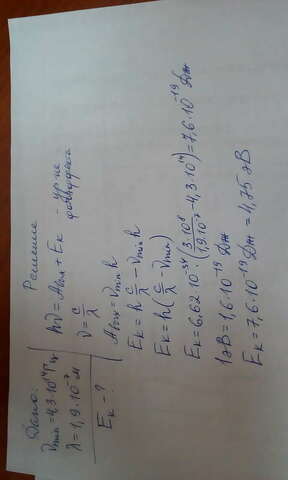 Дано:
ν min = 4,3·10¹⁴ Гц
λ = 1,9·10⁻⁷ м
Eк - ?
Решение
hν = Aвых + Eк - ур-ие фотоэффекта
ν = c/λ
Aвых = ν min h
Eк = h c/λ - ν min h
Eк = h(c/λ - ν min)
Eк = 6,62·10⁻³⁴·(3·10⁸/1,9·10⁻⁷ - 4,3·10¹⁴) = 7,6·10⁻¹⁹ Дж
1 эВ = 1,6·10⁻¹⁹ Дж
Eк = 7,6·10⁻¹⁹ Дж = 4,75 эВ